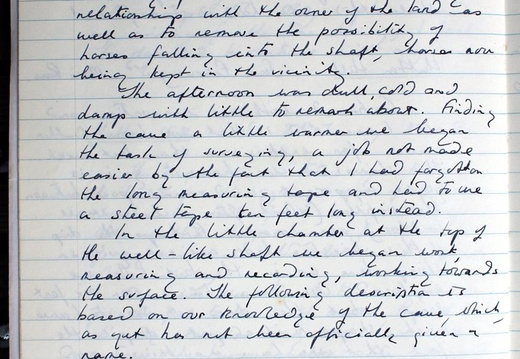 relationships with the owner of the land as
well as to remove the possibility of
horses falling into the shaft, horses now
being kept in the vicinity.
The afternoon was dull, cold and
damp with little to remark about. Finding
the cave a little warmer we began
the task of surveying, a job not made
easier by the fact that I had forgotten
the long measuring tape and had to use
a steel tape ten feet long instead.
In the little chamber at the top of
the well-like shaft we began work,
measuring and recording, working towards
the surface. The following description is
based on our knowledge of the cave, which
as yet has not been officially given a
name.